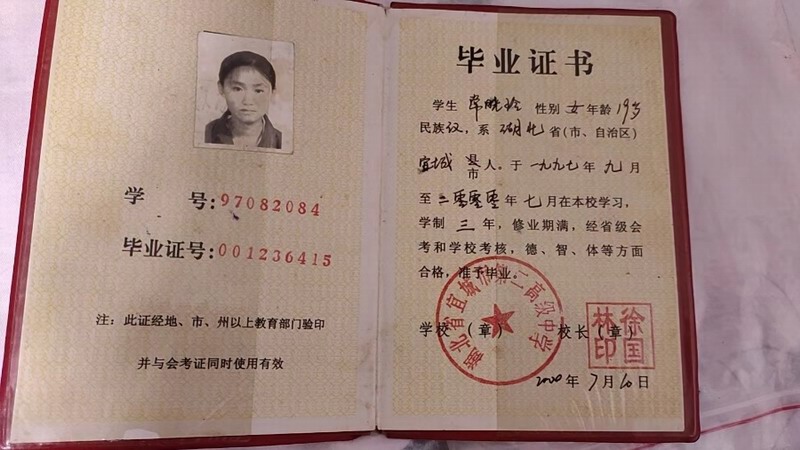 学 号:97082084
毕业证号:001236415
注: 此证经地、市、州以上教育部门验印
并与会考证同时使用有效
毕业证书
学生 晓玲 性别 女 年龄 19岁
民族 汉, 系 湖北 省(市、自治区)
宜城 县市 人。于 一九九七 年 九 月
至 二零零零 年 七 月在本校学习,
学制 三 年, 修业期满, 经省级会
考和学校考核, 德、智、体等方面
合格, 准予毕业。
湖北省宜城市第二高级中学
学校 (章) 校长 (章)
徐国林印
2000 年 7 月 10 日